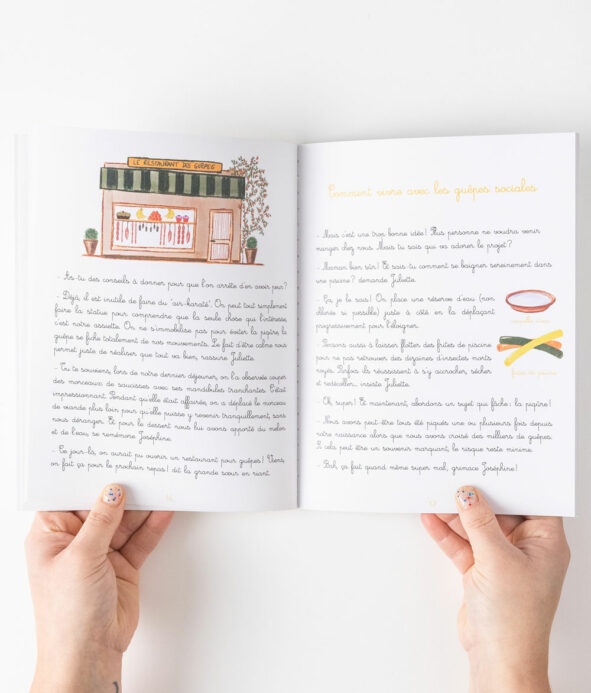 LE RESTAURANT DES GUÊPES
- As-tu des conseils à donner pour que l'on arrête d'en avoir peur ?
- Déjà, il est inutile de faire du "air-karaté". On peut tout simplement
faire la statue pour comprendre que la seule chose qui l'intéresse
c'est notre assiette. On ne s'immobilise pas pour éviter la piqûre la
guêpe se fiche totalement de nos mouvements. Le fait d'être calme nous
permet juste de réaliser que tout va bien, rassure Juliette.
- Tu te souviens, lors de notre dernier déjeuner, on l'a observée couper
des morceaux de saucisses avec ses mandibules tranchantes. C'était
impressionnant. Pendant qu'elle était affairée, on a déplacé le morceau
de viande plus loin pour qu'elle puisse y revenir tranquillement, sans
nous déranger. Et pour le dessert nous lui avons apporté du melon
et de l'eau, se remémore Joséphine.
- Ce jour-là, on aurait pu ouvrir un restaurant pour guêpes ! Viens,
on fait ça pour le prochain repas ! dit la grande sœur en riant.
Comment vivre avec les guêpes sociales
- Mais c'est une trop bonne idée ! Plus personne ne voudra venir
manger chez nous. Mais tu sais qui va adorer le projet ?
- Maman bien sûr ! Et sais-tu comment se baigner sereinement dans
une piscine ? demande Juliette.
- Ça, je le sais ! On place une réserve d'eau (non
chlorée si possible) juste à côté en la déplaçant
progressivement pour l'éloigner.
- Pensons aussi à laisser flotter des frites de piscine
pour ne pas retrouver des dizaines d'insectes morts
noyés. Parfois ils réussissent à s'y accrocher, sécher
et redécoller... insiste Juliette.
frites de piscine
- Oh, super ! Et maintenant, abordons un sujet qui fâche : la piqûre !
- Nous avons peut-être tous été piqués une ou plusieurs fois depuis
notre naissance alors que nous avons croisé des milliers de guêpes.
Si cela peut être un souvenir marquant, le risque reste minime.
- Bah, ça fait quand même super mal, grimace Joséphine !